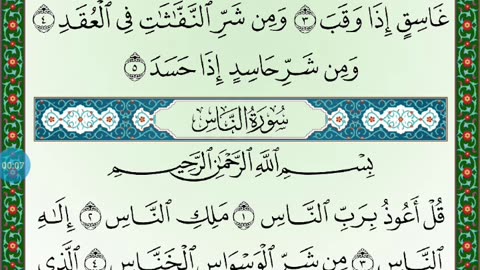 غَاسِقٍ إِذَا وَقَبَ ٣ وَمِن شَرِّ ٱلنَّفَّٰثَٰتِ فِي ٱلْعُقَدِ ٤
وَمِن شَرِّ حَاسِدٍ إِذَا حَسَدَ ٥
سُورَةُ النَّاسِ
بِسْمِ ٱللَّهِ ٱلرَّحْمَٰنِ ٱلرَّحِيمِ
00:07
قُلْ أَعُوذُ بِرَبِّ ٱلنَّاسِ ١ مَلِكِ ٱلنَّاسِ ٢ إِلَٰهِ
ٱلنَّاسِ ٣ مِن شَرِّ ٱلْوَسْوَاسِ ٱلْخَنَّاسِ ٤ ٱلَّذِي